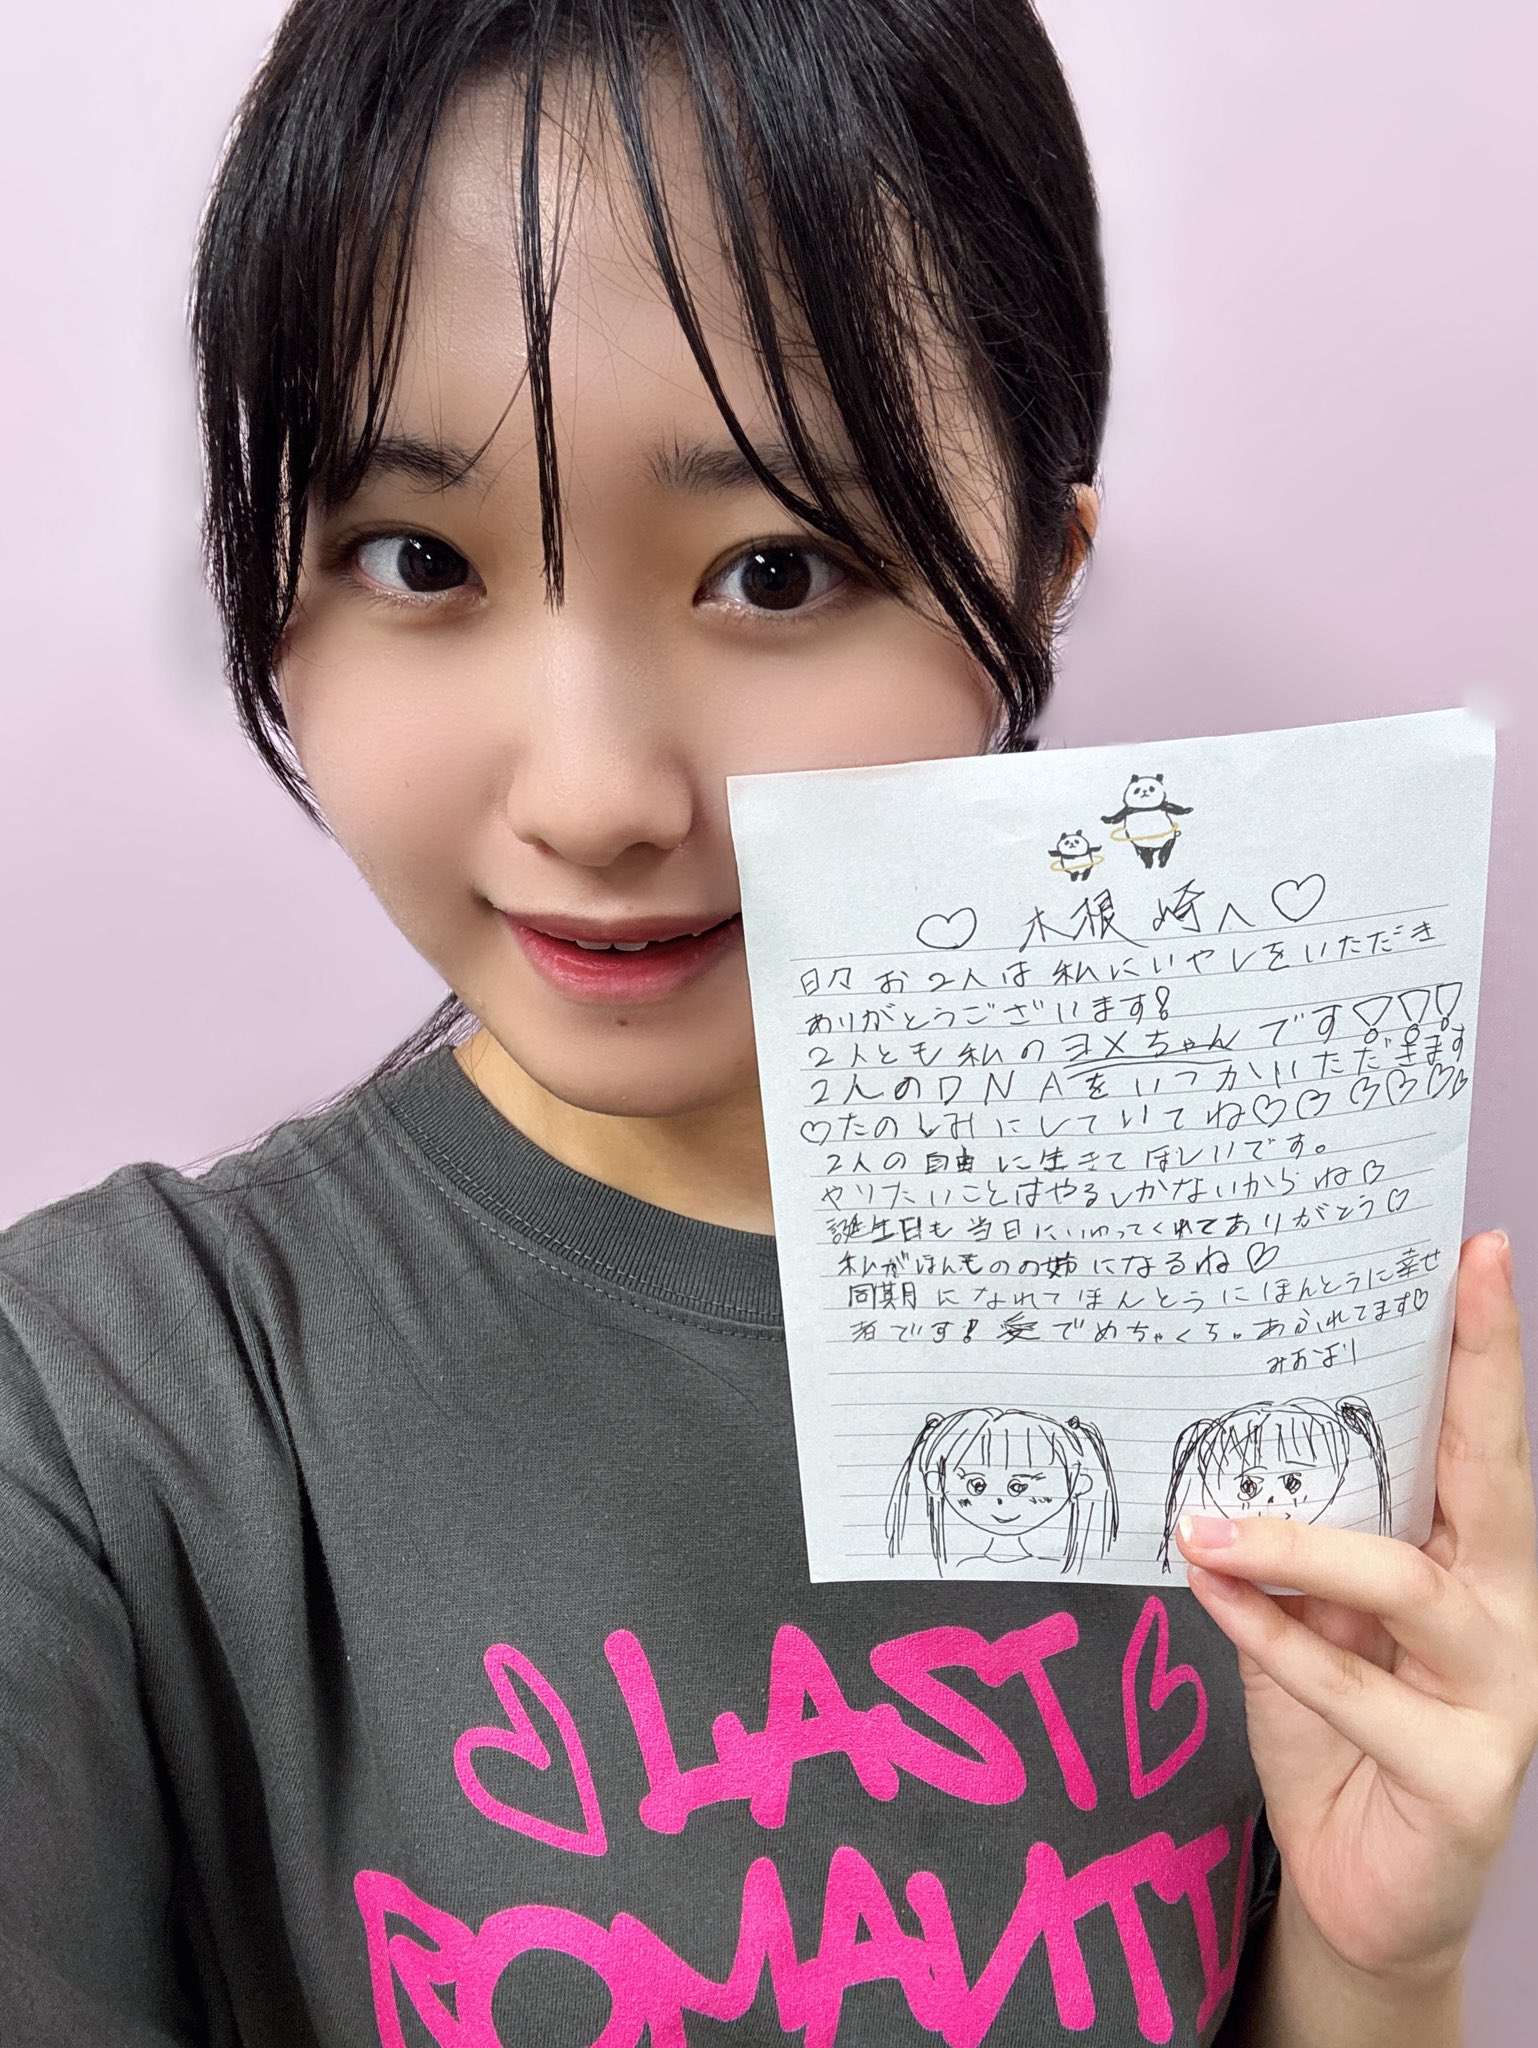 ♡ 木根崎へ ♡
日々お2人は私にいやしをいただき
ありがとうございます!
2人とも私のヨメちゃんです!!!
2人のDNAをいつかいただきます
♡たのしみにしていてね♡♡♡♡♡♡
2人の自由に生きてほしいです。
やりたいことはやるしかないからね♡
誕生日も当日にいわってくれてありがとう♡
私がほんものの姉になるね♡
同期になれてほんとうにほんとうに幸せ
者です!愛でめちゃくち。あふれてます♡
みおばり
♡LAST♡
ROMANTI